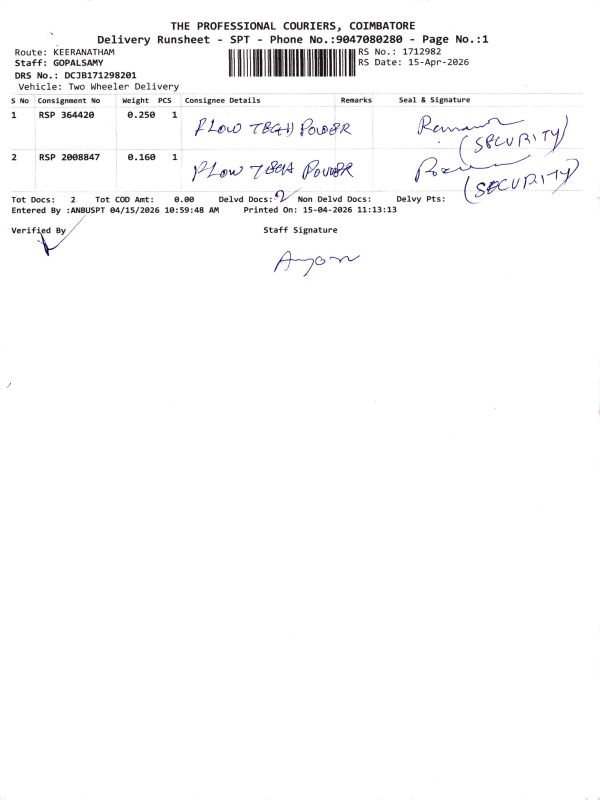 THE PROFESSIONAL COURIERS, COIMBATORE
Delivery Runsheet - SPT - Phone No.:9047080280 - Page No.:1
Route: KEERANATHAM RS No.: 1712982
Staff: GOPALSAMY RS Date: 15-Apr-2026
DRS No.: DCJB171298201
Vehicle: Two Wheeler Delivery
S No Consignment No Weight PCS Consignee Details Remarks Seal & Signature
1 RSP 364420 0.250 1 FLOW TECH POWER
(SECURITY)
2 RSP 2008847 0.160 1 FLOW TECH POWER
(SECURITY)
Tot Docs: 2 Tot COD Amt: 0.00 Delvd Docs: 2 Non Delvd Docs: Delvy Pts:
Entered By :ANBUSPT 04/15/2026 10:59:48 AM Printed On: 15-04-2026 11:13:13
Verified By Staff Signature